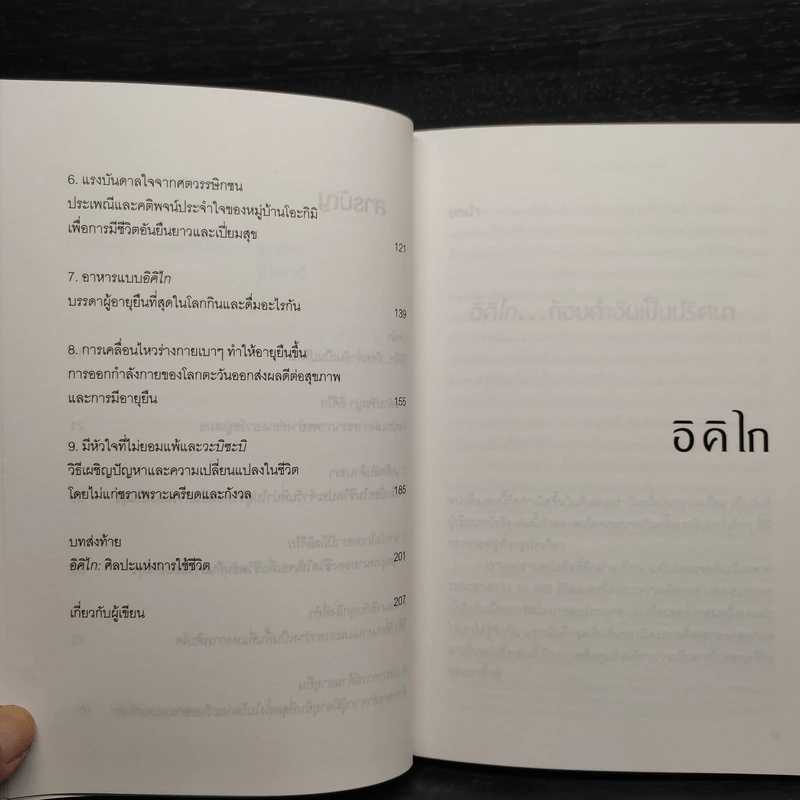 6. แรงบันดาลใจจากศตวรรษิกชน
ประเพณีและคติพจน์ประจำใจของหมู่บ้านโอะกิมิ
เพื่อการมีชีวิตอันยืนยาวและเปี่ยมสุข 121
7. อาหารแบบอิคิไก
บรรดาผู้อายุยืนที่สุดในโลกกินและดื่มอะไรกัน 139
8. การเคลื่อนไหวร่างกายเบาๆ ทำให้อายุยืนขึ้น
การออกกำลังกายของโลกตะวันออกส่งผลดีต่อสุขภาพ
และการมีอายุยืน 155
9. มีหัวใจที่ไม่ยอมแพ้และวะบิซะบิ
วิธีเผชิญปัญหาและความเปลี่ยนแปลงในชีวิต
โดยไม่แก่ชราเพราะเครียดและกังวล 185
บทส่งท้าย
อิคิไก: ศิลปะแห่งการใช้ชีวิต 201
เกี่ยวกับผู้เขียน 207
อิคิไก